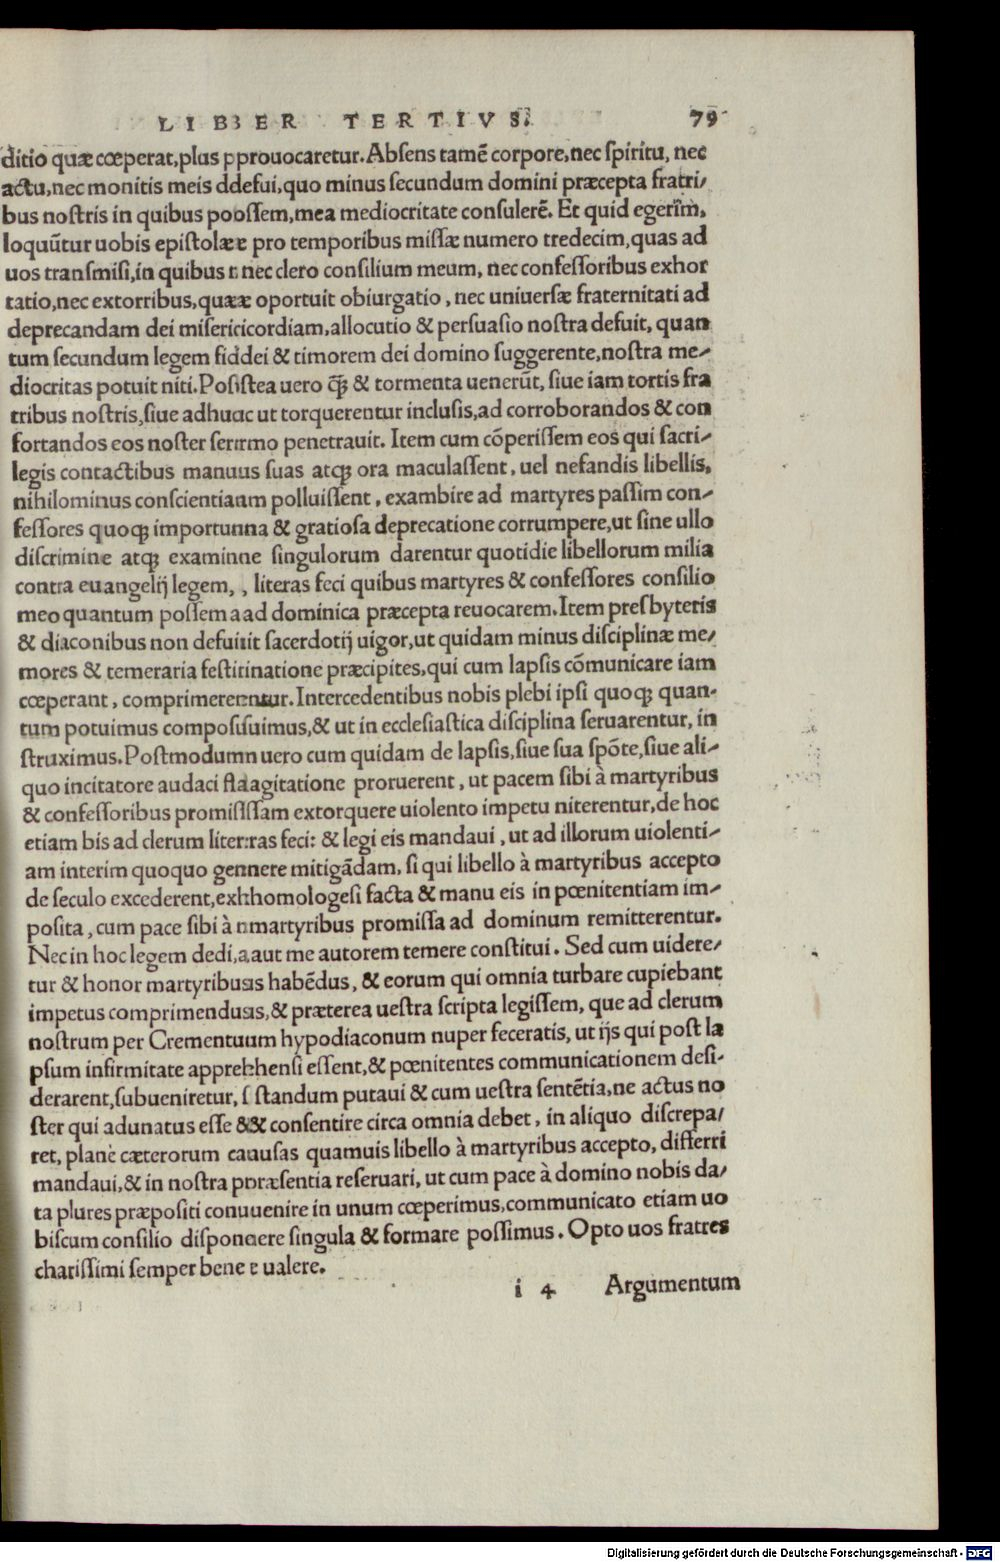 LIBBER TERTIVS. 79
ditio quæ cœperat, plus pprouocaretur. Abſens tamẽ corpore, nec ſpiritu, nec
actu, nec monitis meis ddefui, quo minus ſecundum domini præcepta fratri/
bus noſtris in quibus pooſſem, mea mediocritate conſulerẽ. Et quid egerim,
loquũtur uobis epiſtolæe pro temporibus miſſæ numero tredecim, quas ad
uos tranſmiſi, in quibus n nec clero conſilium meum, nec confeſſoribus exhor
tatio, nec extorribus, quææ oportuit obiurgatio, nec uniuerſæ fraternitati ad
deprecandam dei miſericicordiam, allocutio & perſuaſio noſtra defuit, quan
tum ſecundum legem fiddei & timorem dei domino ſuggerente, noſtra me/
diocritas potuit niti. Poſiſtea uero q̃ꝫ & tormenta uenerũt, ſiue iam tortis fra
tribus noſtris, ſiue adhucc ut torquerentur incluſis, ad corroborandos & con
fortandos eos noſter ſerrmo penetrauit. Item cum cõperiſſem eos qui ſacri/
legis contactibus manuus ſuas atqꝫ ora maculaſſent, uel nefandis libellis,
nihilominus conſcientiaam polluiſſent, exambire ad martyres paſſim con/
feſſores quoqꝫ importunna & gratioſa deprecatione corrumpere, ut ſine ullo
diſcrimine atqꝫ examinne ſingulorum darentur quotidie libellorum milia
contra euangelij legem, , literas feci quibus martyres & confeſſores conſilio
meo quantum poſſem a ad dominica præcepta reuocarem. Item preſbyteris
& diaconibus non defuitit ſacerdotij uigor, ut quidam minus diſciplinæ me/
mores & temeraria feſtitinatione præcipites, qui cum lapſis cõmunicare iam
cœperant, comprimerenntur. Intercedentibus nobis plebi ipſi quoqꝫ quan-
tum potuimus compoſuſuimus, & ut in eccleſiaſtica diſciplina ſeruarentur, in
ſtruximus. Poſtmodumn uero cum quidam de lapſis, ſiue ſua ſpõte, ſiue ali/
quo incitatore audaci flaagitatione proruerent, ut pacem ſibi à martyribus
& confeſſoribus promiſſiſſam extorquere uiolento impetu niterentur, de hoc
etiam bis ad clerum literras feci: & legi eis mandaui, ut ad illorum uiolenti/
am interim quoquo gennere mitigãdam, ſi qui libello à martyribus accepto
de ſeculo excederent, exhhomologeſi facta & manu eis in pœnitentiam im/
poſita, cum pace ſibi à mmartyribus promiſſa ad dominum remitterentur.
Nec in hoc legem dedi, aaut me autorem temere conſtitui. Sed cum uidere/
tur & honor martyribusis habẽdus, & eorum qui omnia turbare cupiebant
impetus comprimendusis, & præterea ueſtra ſcripta legiſſem, que ad clerum
noſtrum per Crementuum hypodiaconum nuper feceratis, ut ijs qui poſt la
pſum infirmitate apprehhenſi eſſent, & pœnitentes communicationem deſi-
derarent, ſubueniretur, ſ ſtandum putaui & cum ueſtra ſentẽtia, ne actus no
ſter qui adunatus eſſe && conſentire circa omnia debet, in aliquo diſcrepa/
ret, planè cæterorum cauuſas quamuis libello à martyribus accepto, differri
mandaui, & in noſtra ppræſentia reſeruari, ut cum pace à domino nobis da/
ta plures præpoſiti conuuenire in unum cœperimus, communicato etiam uo
biſcum conſilio diſponnere ſingula & formare poſſimus. Opto uos fratres
chariſſimi ſemper bene e ualere.
i 4 Argumentum
Digitalisierung gefördert durch die Deutsche Forschungsgemeinschaft - DFG